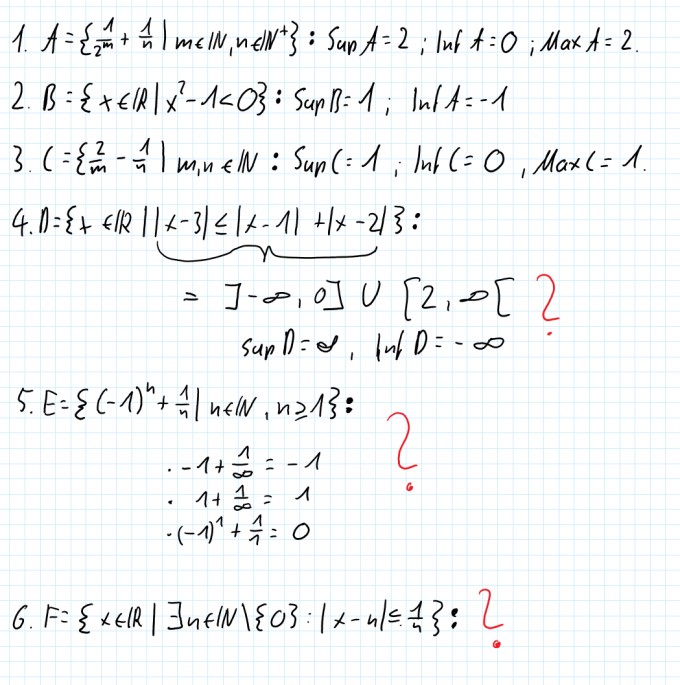 1. A={1/2^m + 1/n | m∈ℕ, n∈ℕ⁺} : Sup A = 2 ; Inf A = 0 ; Max A = 2.
2. B = {x∈ℝ | x² - 1 < 0} : Sup B = 1 ; Inf A = -1
3. C = {2/m - 1/n | m,n∈ℕ : Sup C = 1 ; Inf C = 0 , Max C = 1.
4. D = {x∈ℝ | |x-3| ≤ |x-1| + |x-2|} :
= ]-∞, 0] ∪ [2, ∞[ ?
sup D = ∞ , Inf D = -∞
5. E = {(-1)ⁿ + 1/n | n∈ℕ , n≥1} :
?
· -1 + 1/∞ = -1
· 1 + 1/∞ = 1
· (-1)¹ + 1/1 = 0
6. F = {x∈ℝ | ∃n∈ℕ\{0} : |x-n| ≤ 1/n} : ?